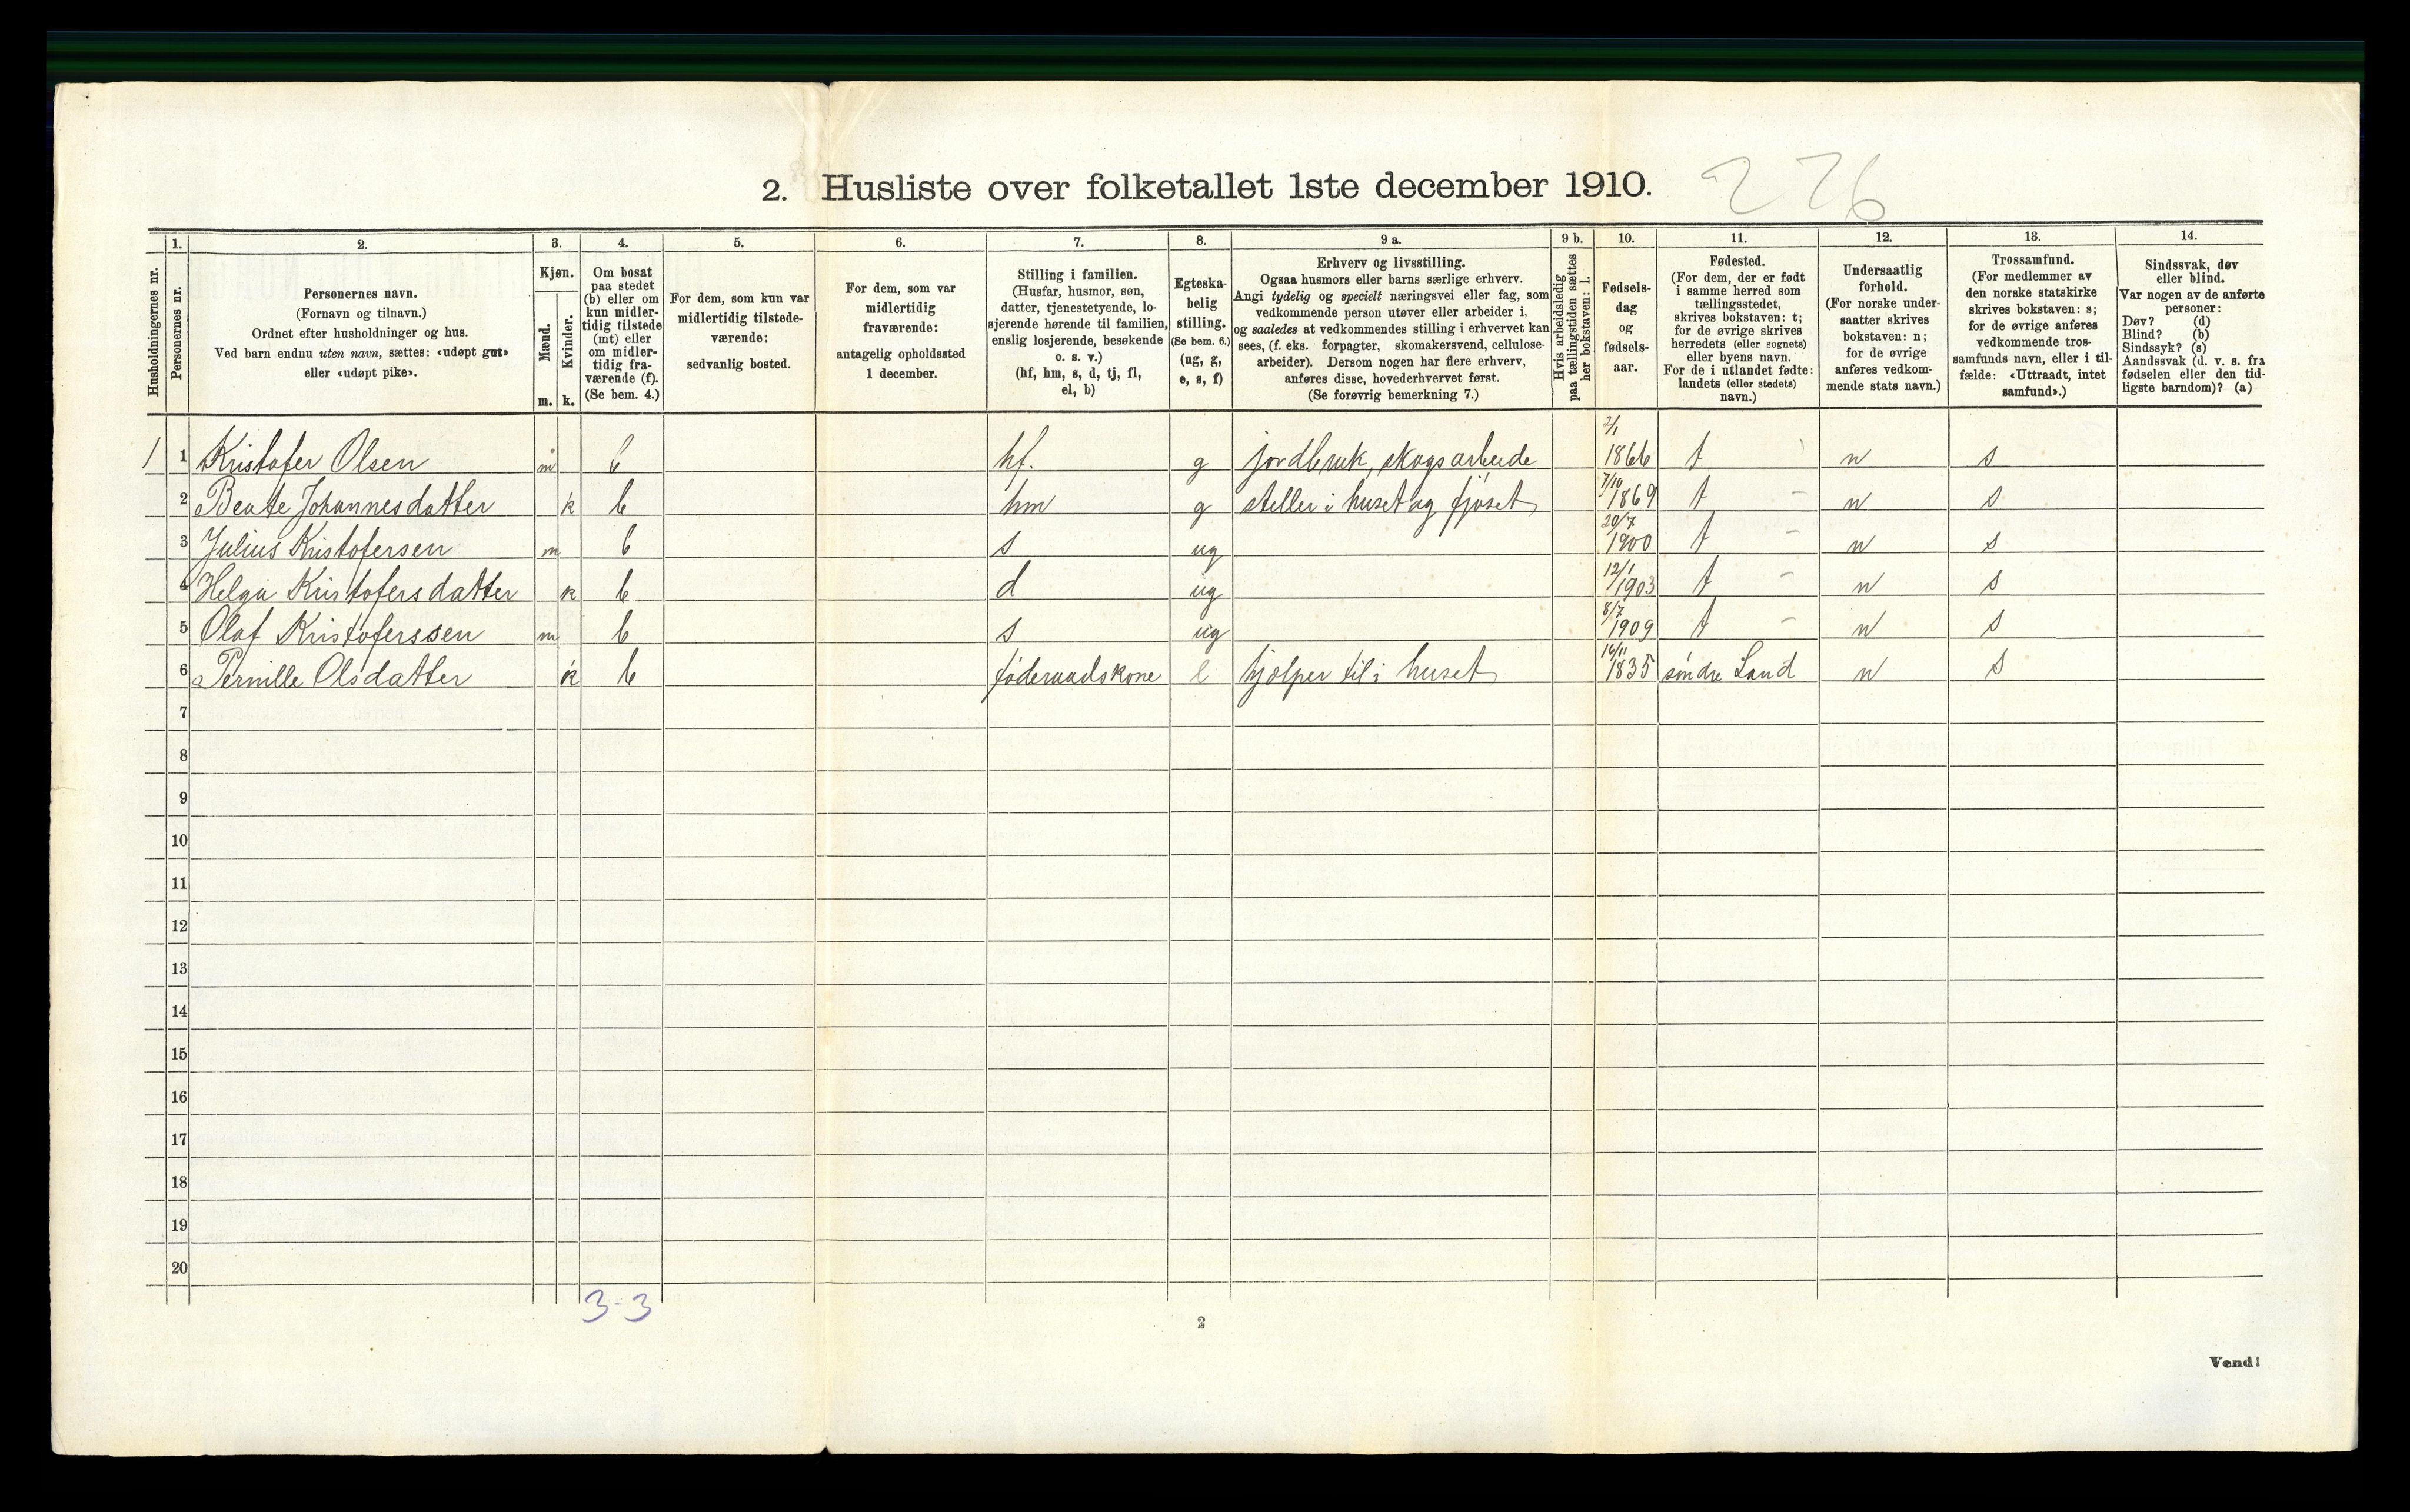 2. Husliste over folketallet 1ste december 1910. 226
Husholdningernes nr.
1.
Personernes nr.
2.
Personernes navn.
(Fornavn og tilnavn.)
Ordnet efter husholdninger og hus.
Ved barn endnu uten navn, sættes: «udøpt gut»
eller «udøpt pike».
3.
Kjøn.
Mænd.
Kvinder.
m. k.
4.
Om bosat
paa stedet
(b) eller om
kun midler-
tidig tilstede
(mt) eller
om midler-
tidig fra-
værende (f).
(Se bem. 4.)
5.
For dem, som kun var
midlertidig tilstede-
værende:
sedvanlig bosted.
6.
For dem, som var
midlertidig
fraværende:
antagelig opholdssted
1 december.
7.
Stilling i familien.
(Husfar, husmor, søn,
datter, tjenestetyende, lo-
sjerende hørende til familien,
enslig losjerende, besøkende
o. s. v.)
(hf, hm, s, d, tj, fl,
el, b)
8.
Egteska-
belig
stilling.
(Se bem. 6.)
(ug, g,
e, s, f)
9 a.
Erhverv og livsstilling.
Ogsaa husmors eller barns særlige erhverv.
Angi tydelig og specielt næringsvei eller fag, som
vedkommende person utøver eller arbeider i,
og saaledes at vedkommendes stilling i erhvervet kan
sees, (f. eks. forpagter, skomakersvend, cellulose-
arbeider). Dersom nogen har flere erhverv,
anføres disse, hovederhvervet først.
(Se forøvrig bemerkning 7.)
9 b.
Hvis arbeidsledig
paa tællingstiden sættes
her bokstaven: l.
10.
Fødsels-
dag
og
fødsels-
aar.
11.
Fødested.
(For dem, der er født
i samme herred som
tællingsstedet,
skrives bokstaven: t;
for de øvrige skrives
herredets (eller sognets)
eller byens navn.
For de i utlandet fødte:
landets (eller stedets)
navn.)
12.
Undersaatlig
forhold.
(For norske under-
saatter skrives
bokstaven: n;
for de øvrige
anføres vedkom-
mende stats navn.)
13.
Trossamfund.
(For medlemmer av
den norske statskirke
skrives bokstaven: s;
for de øvrige anføres
vedkommende tros-
samfunds navn, eller i til-
fælde: «Uttraadt, intet
samfund».)
14.
Sindssvak, døv
eller blind.
Var nogen av de anførte
personer:
Døv? (d)
Blind? (b)
Sindssyk? (s)
Aandssvak (d. v. s. fra
fødselen eller den tid-
ligste barndom)? (a)
1 1 Kristofer Olsen m b hf. g jordbruk, skogsarbeide 2/1 1866 t n s
2 Beate Johannesdatter k b hm g steller i huset og fjøset 7/10 1869 t - n s
3 Julius Kristofersen m b s ug 20/7 1900 t - n s
4 Helga Kristofersdatter k b d ug 12/1 1903 t - n s
5 Olaf Kristoferssen m b s ug 8/7 1909 t - n s
6 Pernille Olsdatter k b føderaadskone e hjelper til i huset 16/11 1835 søndre Land n s
7
8
9
10
11
12
13
14
15
16
17
18
19
20
3-3
2
Vend!